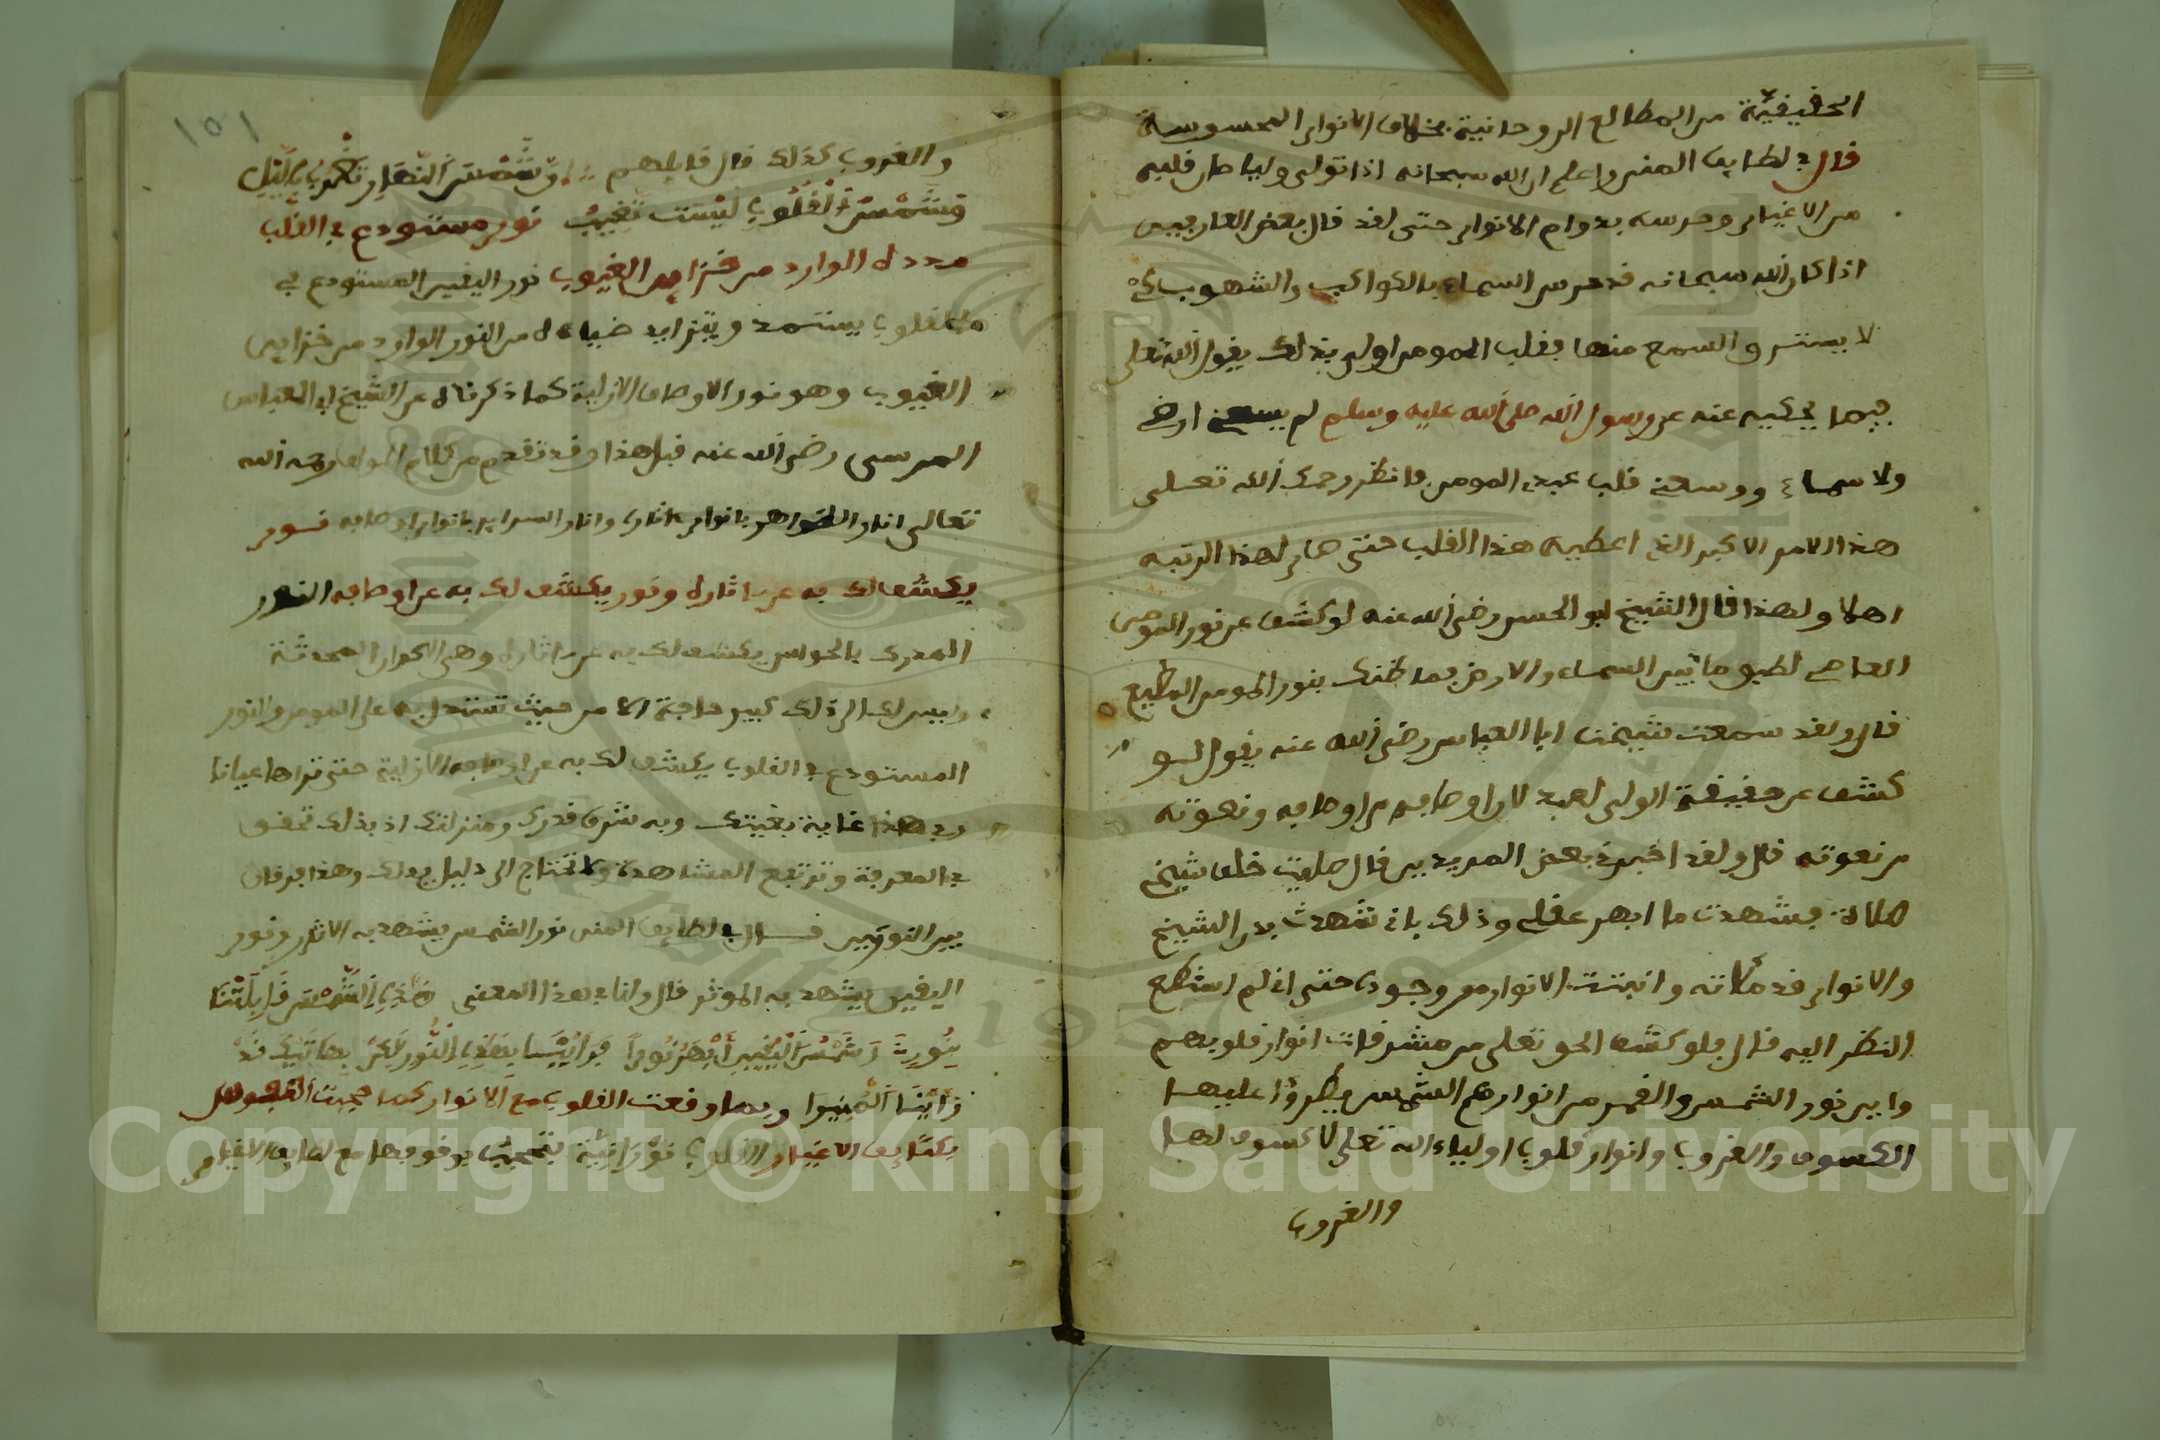 الحقيقية من المطالع الروحانية بخلاف الانوار المحسوسة
قال في لطايف المنن واعلم ان الله سبحانه اذا تولى وليا صان قلبه
من الاغيار وحرسه بدوام الانوار حتى لقد قال بعض العارفين
اذا كان الله سبحانه قد حرس السماء بالكواكب والشهوب كي
لا يسترو السمع منها فقلب المومن اولى بذلك يقول الله تعلى
فيما يحكيه عنه عن رسول الله صلى الله عليه وسلم لم يسعني ارضي
ولا سماءي ووسعني قلب عبدي المومن فانظر رحمك الله تعلى
هذا الامر الاكبر الذي اعطيه هذا القلب حتى صار لهذا الرتبه
اهلا ولهذا قال الشيخ ابو الحسن رضي الله عنه لو كشف عن نور المومن
العاصي لطبق ما بين السماء والارض فما ظنك بنور المومن المطيع
قال ولقد سمعت شيخنا ابا العباس رضي الله عنه يقول لو
كشف عن حقيقة الولي لعبد لان اوصافه من اوصافه ونعوته
من نعوته قال ولقد اخبرني بعض المريدين قال صليت خلف شيخي
صلاة فشهدت ما ابهر عقلي وذلك باني شهدت بدن الشيخ
والانوار قد ملأته وانبثت الانوار من وجوده حتى اني لم استطع
النظر اليه قال فلو كشف الحق تعلى من مشرقات انوار قلوبهم
واين نور الشمس والقمر من انوارهم الشمس يطرؤا عليها
الكسوف والغروب وانوار قلوب اولياء الله تعلى لا كسوف لها
والغروب
١٥١
والغروب كذلك قال قايلهم ان شمس النهار تغرب بالليل
وشمس القلوب ليست تغيب نور مستودع في القلب
مدده الوارد من خزاين الغيوب نور اليقين المستودع في
القلوب يستمد ويتزايد ضياءه من النور الوارد من خزاين
الغيوب وهو نور الاوصاف الازلية كما ذكرناه عن الشيخ ابي العباس
المرسي رضي الله عنه قبل هذا وقد تقدم من كلام المولف رحمه الله
تعالى انار الظواهر بانوار اثاره وانار السراير بانوار اوصافه نور
يكشف لك به عن اثاره ونور يكشف لك به عن اوصافه النور
المدرك بالحواس يكشف لك به عن اثاره وهي الاكوان المحدثة
وليس لك الى ذلك كبير حاجة الا من حيث تستدل به على المومر والنور
المستودع في القلوب يكشف لك به عن اوصافه الازلية حتى تراها عيانا
وفي هذا غاية بغيتك وبه شرف قدرك ومنزلتك اذ بذلك تتحقق
في المعرفة وترتفع المشاهدة ولا تحتاج الى دليل يدلك وهذا فرقان
بين النورين قال في لطايف المنن نور الشمس يشهد به الاثار ونور
اليقين يشهد به الموثر قال ولنا في هذا المعنى هذي الشمس قابلتنا
بنور وشمس اليقين ابهر نورا فراينا بهذه النور لكن بهاتيك قد
راينا المنيرا وبما وقفت القلوب مع الانوار كما حجبت النفوس
بكثايف الاغيار القلوب نورانية فتحجب بوقوفها مع لطايف الانوار